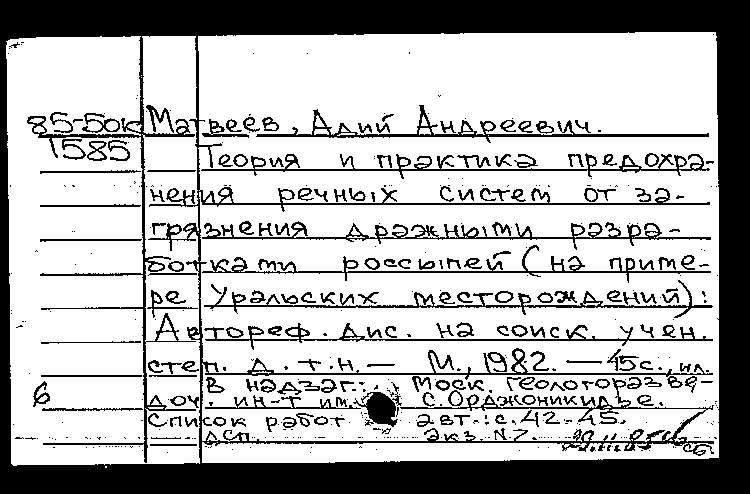 85-5ок Матвеев, Адий Андреевич.
1585 Теория и практика предохра-
нения речных систем от за-
грязнения дражными разра-
ботками россыпей (на приме-
ре Уральских месторождений):
Автореф. дис. на соиск. учен.
степ. д. т. н. — М., 1982. — 45с., ил.
В надзаг.: Моск. геологоразве-
6 доч. ин-т им. С. Орджоникидзе.
Список работ авт.: с. 42-45.
ДСП. Экз. N7.
сб.